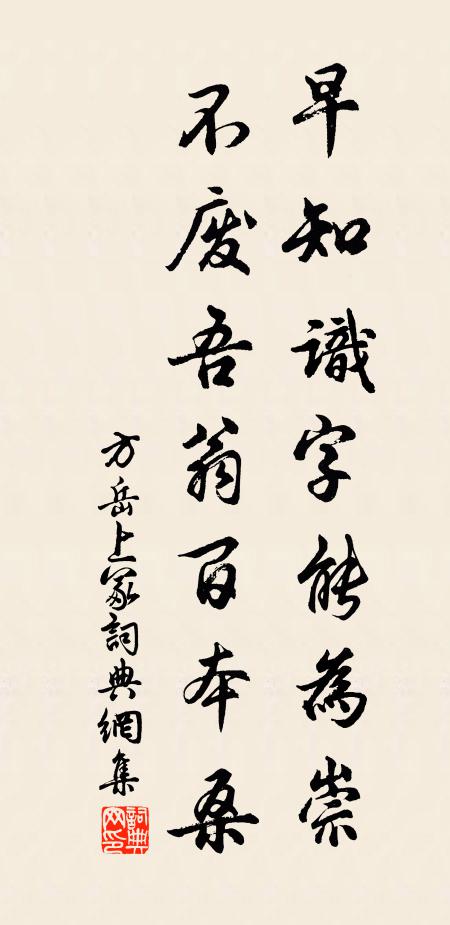 早知識字能為祟
不廢吾翁百本桑
方岳上冢詞典網集
詞典网印